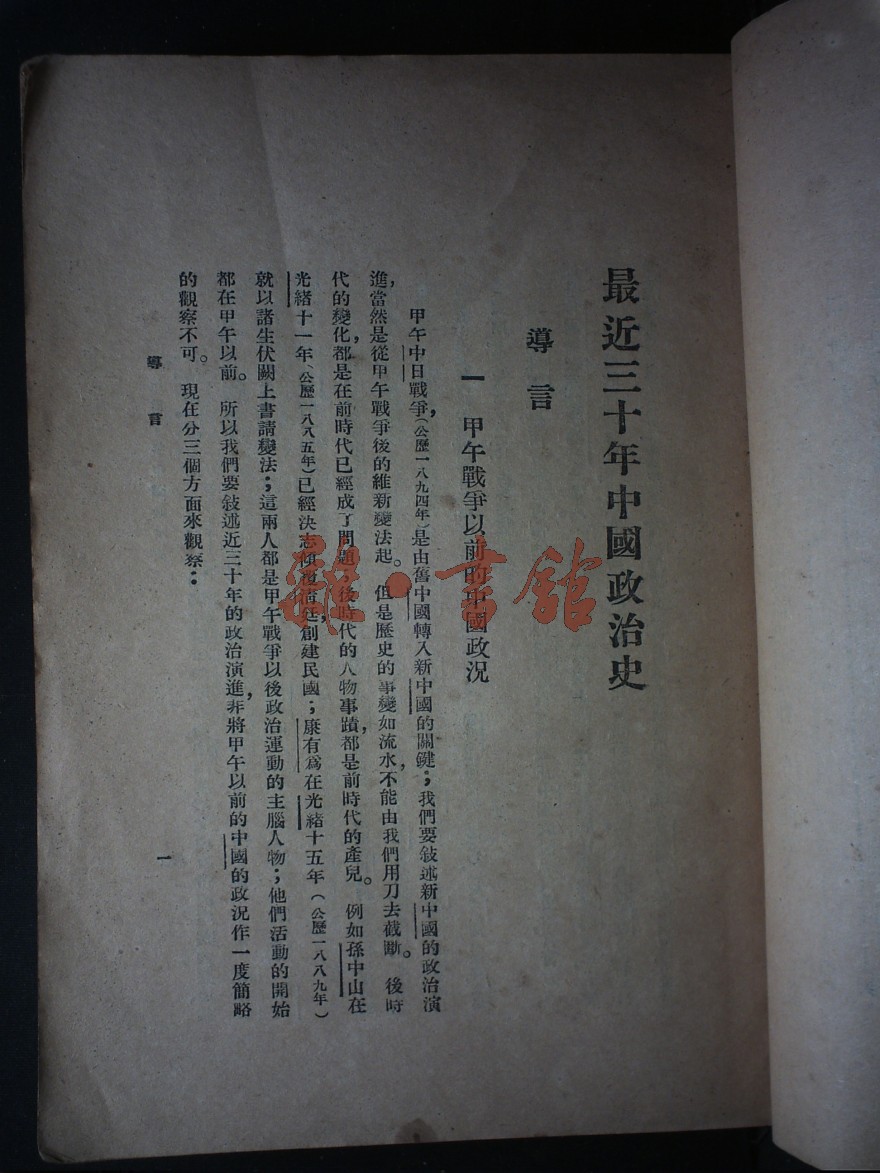 最近三十年中國政治史
導言
一 甲午戰爭以前的中國政況
甲午中日戰爭,(公歷一八九四年)是由舊中國轉入新中國的關鍵;我們要敍述新中國的政治演
進,當然是從甲午戰爭後的維新變法起。但是歷史的事變如流水,不能由我們用刀去截斷。後時
代的變化,都是在前時代已經成了問題,後時代的人物事蹟,都是前時代的產兒。例如孫中山在
光緒十一年(公歷一八八五年)已經決志傾覆清廷,創建民國;康有爲在光緒十五年(公歷一八八九年)
就以諸生伏闕上書請變法;這兩人都是甲午戰爭以後政治運動的主腦人物;他們活動的開始
都在甲午以前。所以我們要敍述近三十年的政治演進,非將甲午以前的中國的政況作一度簡略
的觀察不可。現在分三個方面來觀察:
導言
一
雜·書館